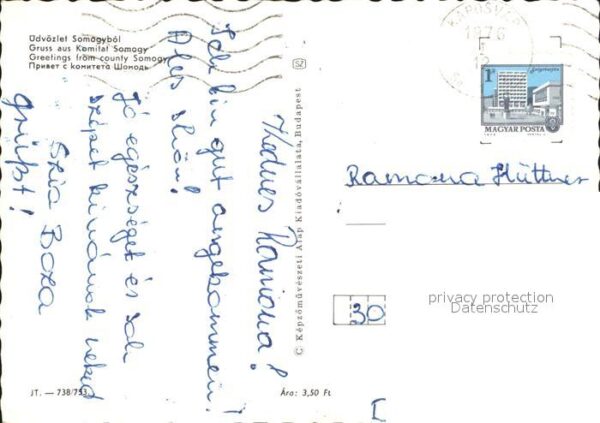 Üdvözlet Somogyból
Gruss aus Komitat Somogy
Greetings from county Somogy
Привет с комитета Шомодь
SZ
Kedves Ramona!
Ich bin gut angekommen!
Alles schön!
Jó egészséget és sok
szépet kívánok neked
Szia Boza
grüßt!
© Képzőművészeti Alap Kiadóvállalata, Budapest
JT. — 738/753
Ára: 3,50 Ft
KAPOSVÁR
1976
1Ft
MAGYAR POSTA
Ramona Hüttner
30
privacy protection
Datenschutz